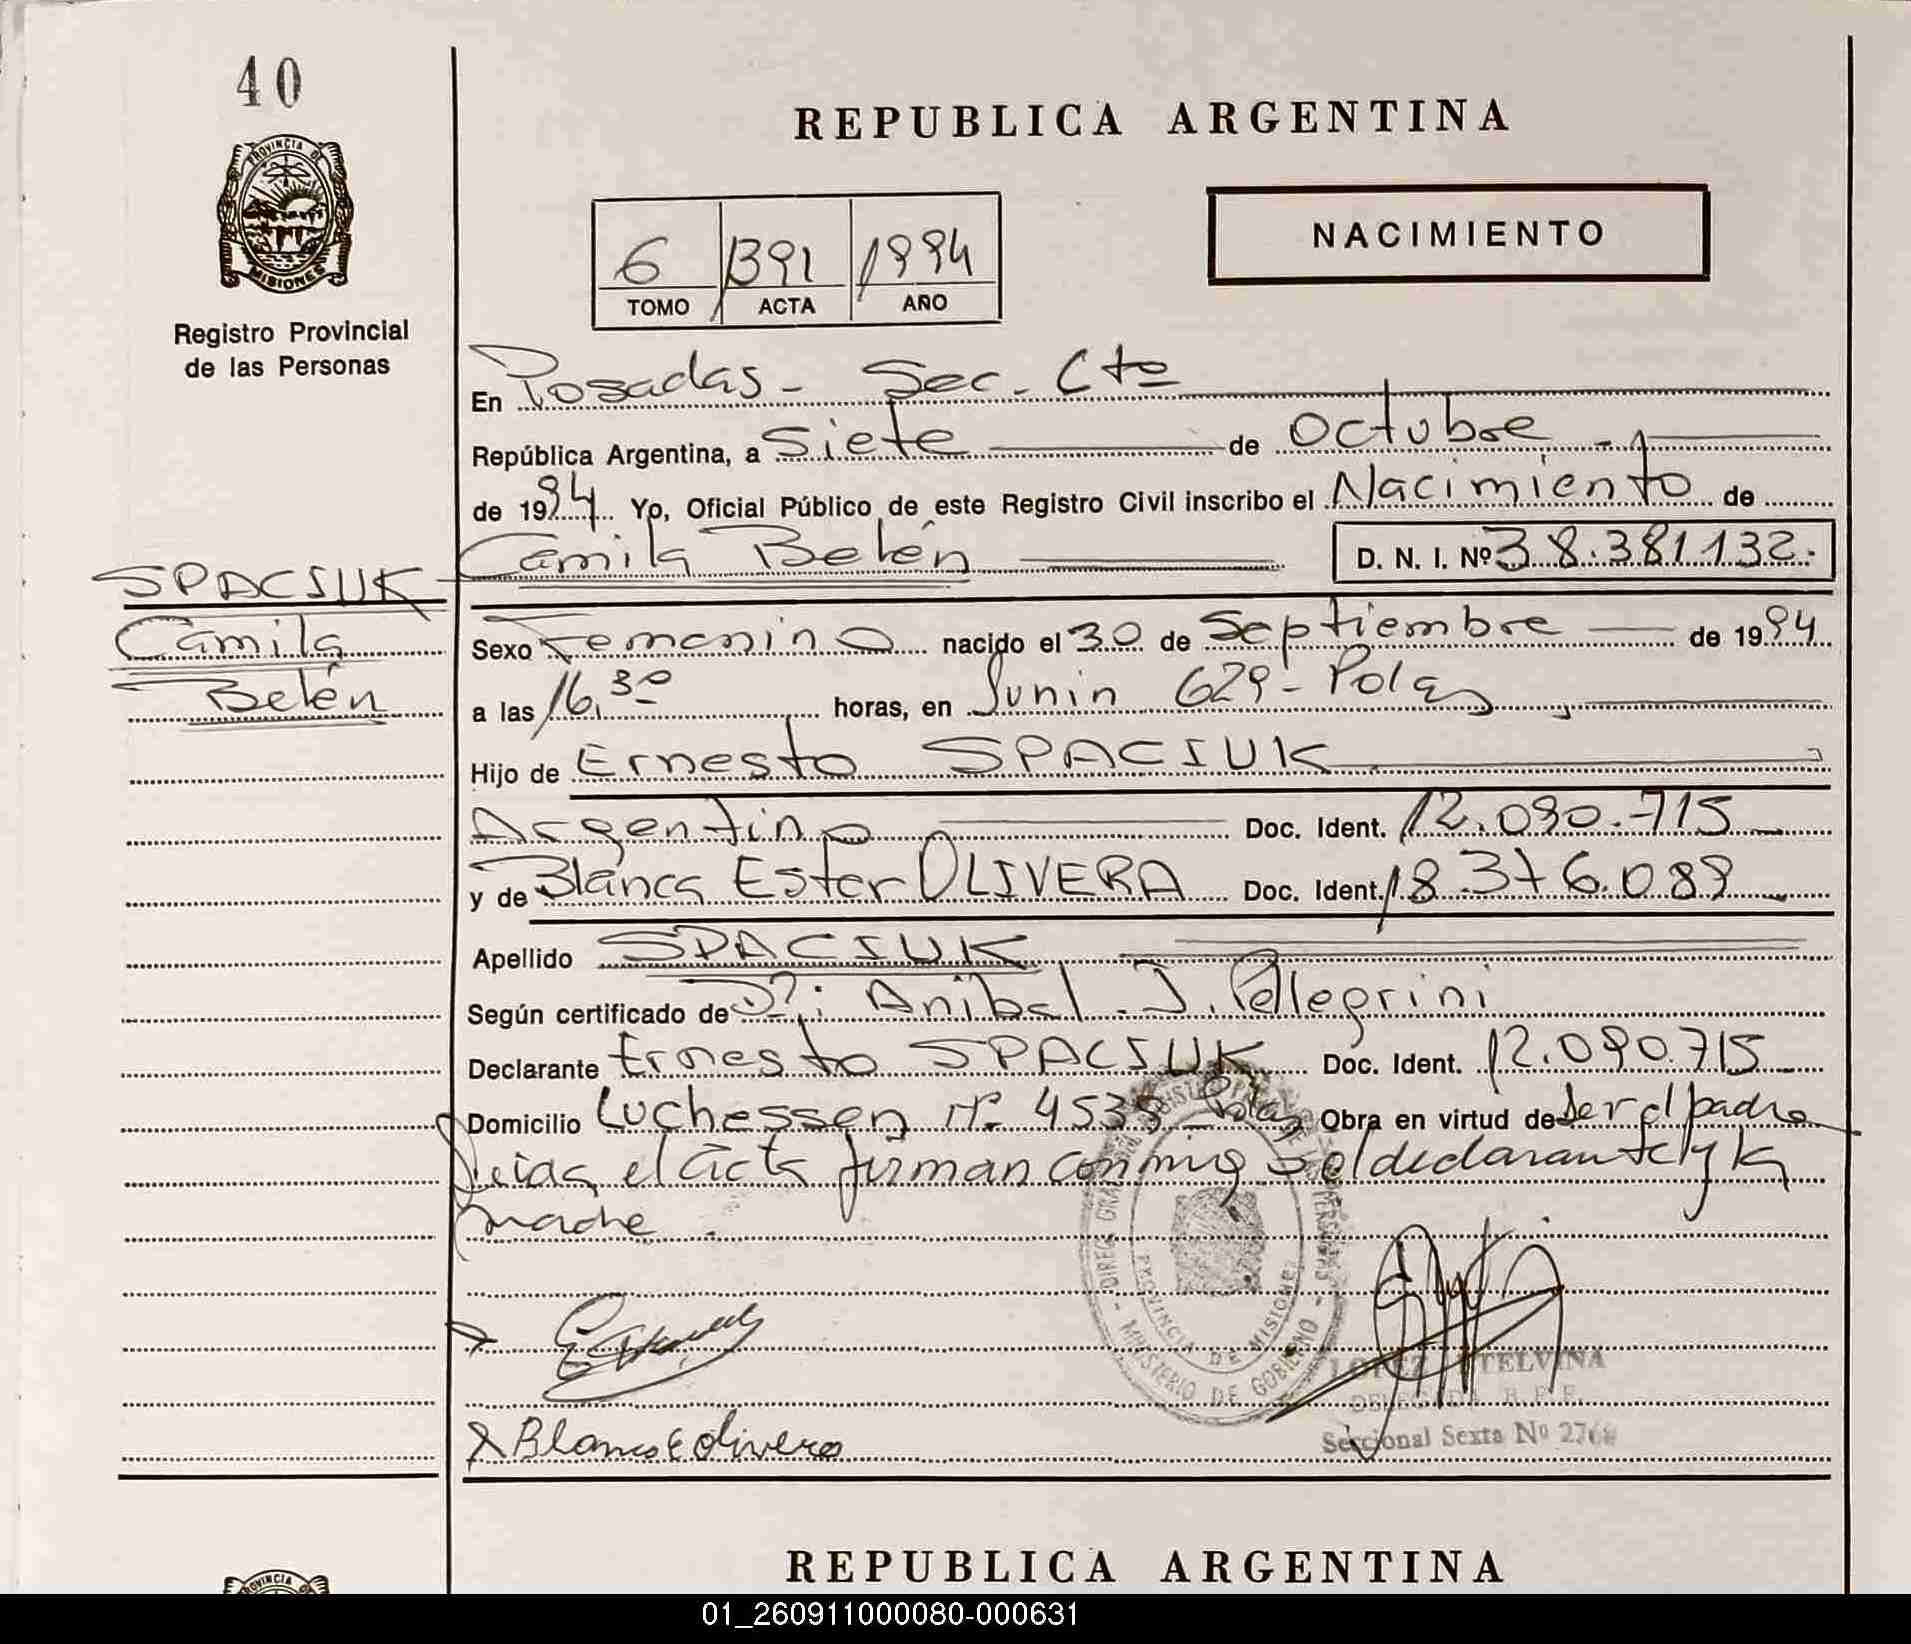 40
PROVINCIA DE
MISIONES
Registro Provincial
de las Personas
REPUBLICA ARGENTINA
6 1391 1994
TOMO ACTA AÑO
NACIMIENTO
En Posadas - Sec. Cto
República Argentina, a Siete de Octubre
de 1994 Yo, Oficial Público de este Registro Civil inscribo el Nacimiento de
Camila Belén D. N. I. Nº 38.381.132.
SPACIUK
Camila
Belén
Sexo Femenino nacido el 30 de Septiembre de 1994
a las 16,30 horas, en Junin 629 - Pdas
Hijo de Ernesto SPACIUK
Argentino Doc. Ident. 12.090.715
y de Blanca Ester OLIVERA Doc. Ident. 18.376.089
Apellido SPACIUK
Según certificado de Dr: Anibal J. Pellegrini
Declarante Ernesto SPACIUK Doc. Ident. 12.090.715
Domicilio Luchessen Nº 4535 Pdas Obra en virtud de ser el padre
Leida el acta firman conmigo el declarante y la
madre.
DIREC. GRAL. DEL REGISTRO PROVINCIAL DE LAS PERSONAS
PROVINCIA DE MISIONES
MINISTERIO DE GOBIERNO
LOPEZ ETELVINA
DELEGADA R.P.P.
Seccional Sexta Nº 2768
Blanca E Olivera
REPUBLICA ARGENTINA
PROVINCIA
01_260911000080-000631